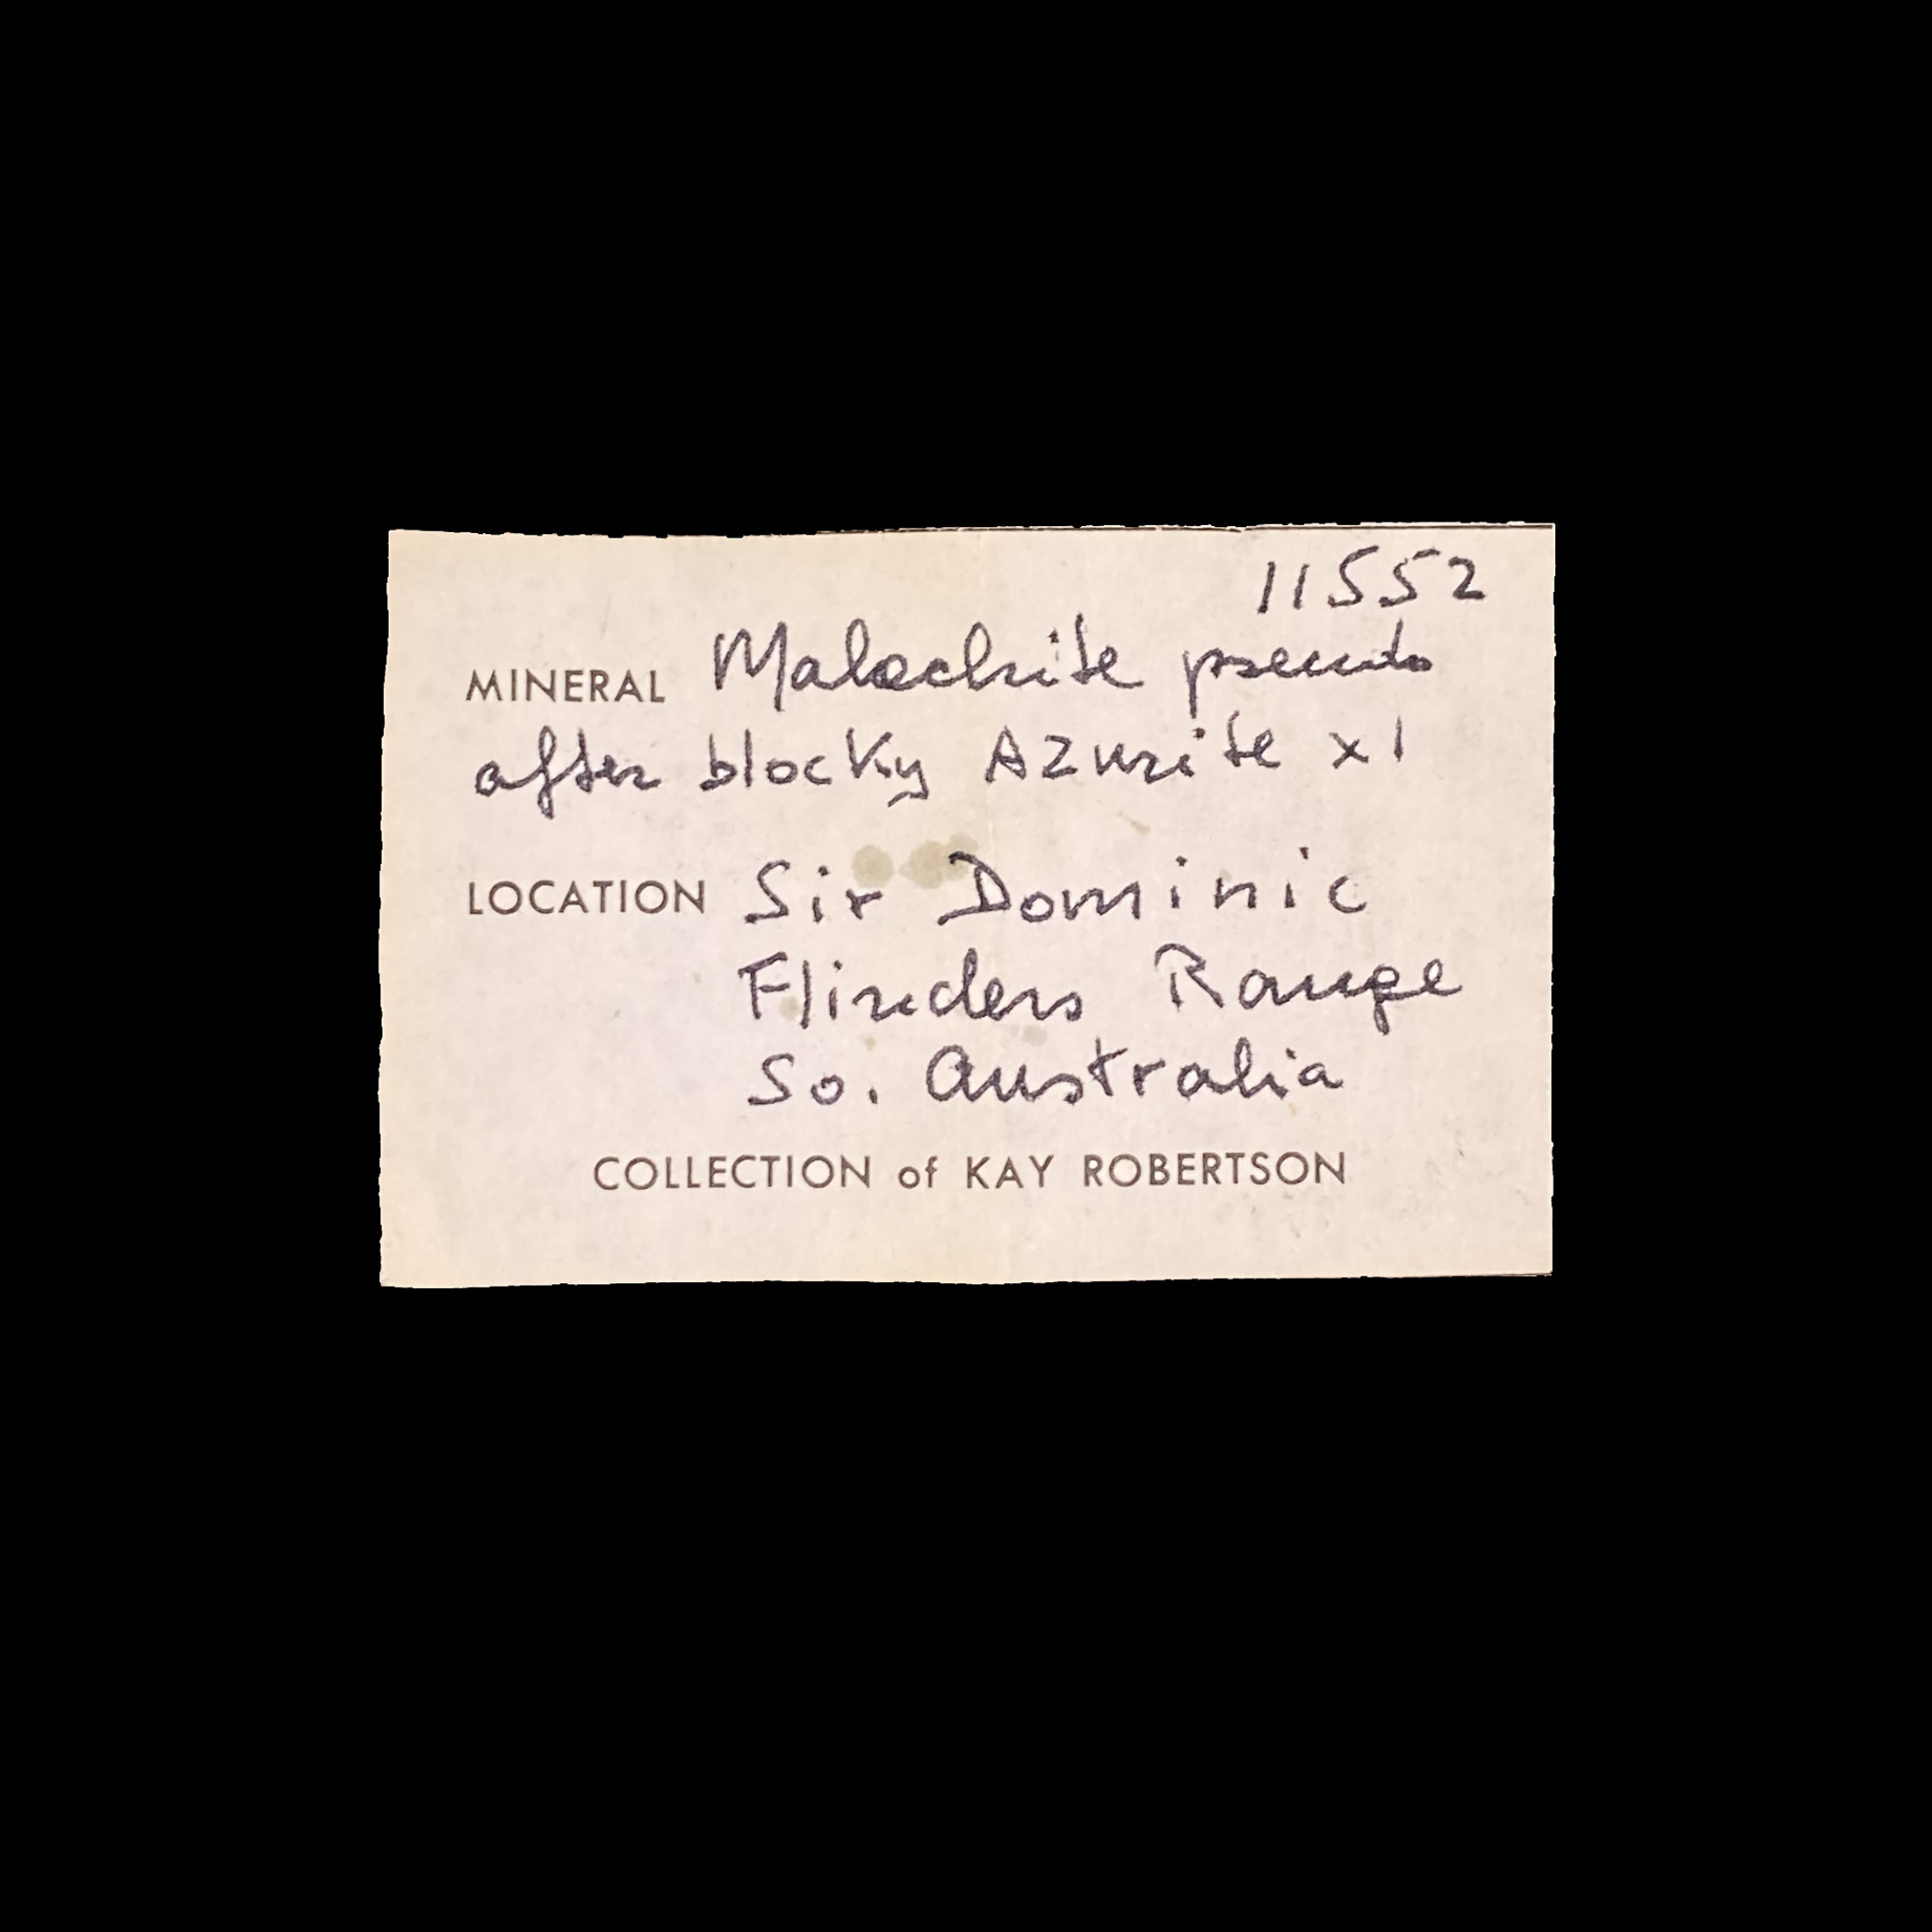 11552
MINERAL Malachite pseudo
after blocky Azurite xl
LOCATION Sir Dominic
Flinders Range
So. Australia
COLLECTION of KAY ROBERTSON